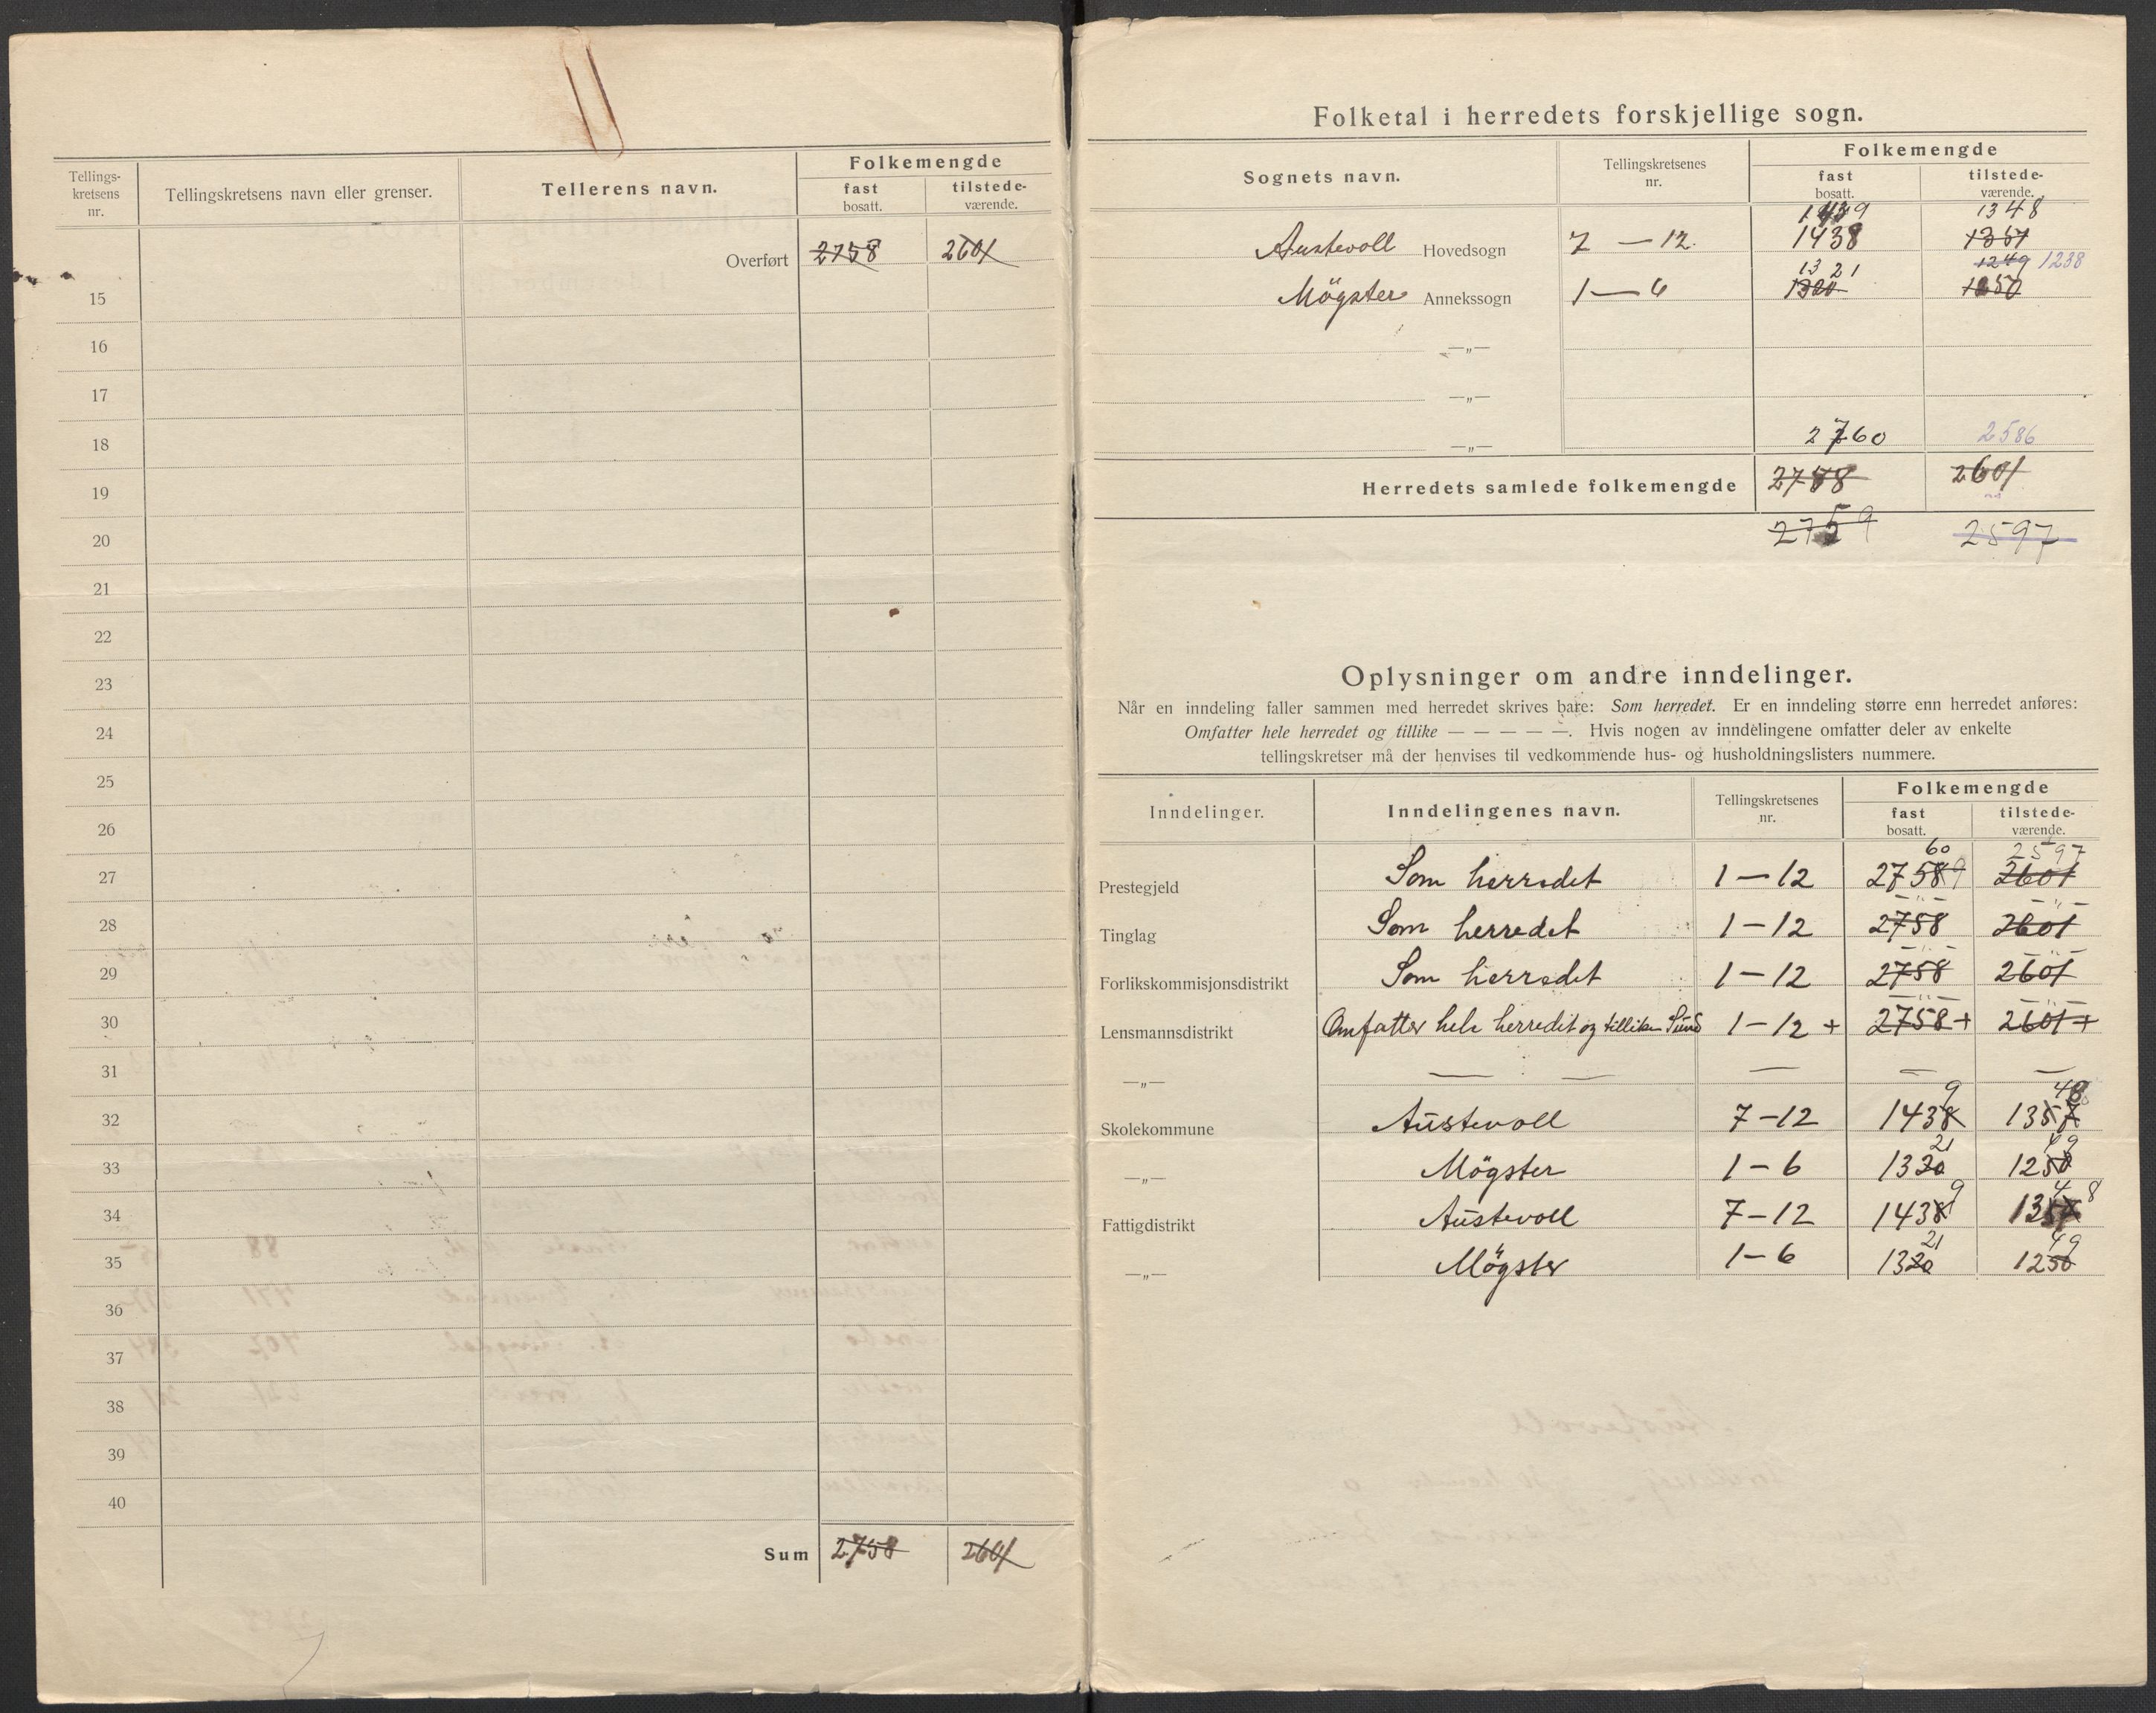 Tellings-
kretsens
nr.
Tellingskretsens navn eller grenser.
Tellerens navn.
Folkemengde
fast
bosatt.
tilstede-
værende.
Overført 2758 2601
15
16
17
18
19
20
21
22
23
24
25
26
27
28
29
30
31
32
33
34
35
36
37
38
39
40
Sum 2758 2601
Folketal i herredets forskjellige sogn.
Sognets navn.
Tellingskretsenes
nr.
Folkemengde
fast
bosatt.
tilstede-
værende.
1439 1348
Austevoll Hovedsogn 7 — 12. 1438 1351
1321 1249 1238
Mögster Annekssogn 1 — 6 1320 1250
—„—
—„—
2760 2586
—„—
Herredets samlede folkemengde 2758 2601
2759 2597
Oplysninger om andre inndelinger.
Når en inndeling faller sammen med herredet skrives bare: Som herredet. Er en inndeling større enn herredet anføres:
Omfatter hele herredet og tillike — — — — —. Hvis nogen av inndelingene omfatter deler av enkelte
tellingskretser må der henvises til vedkommende hus- og husholdningslisters nummere.
Inndelinger.
Inndelingenes navn.
Tellingskretsenes
nr.
Folkemengde
fast
bosatt.
tilstede-
værende.
60 2597
Prestegjeld Som herredet 1 — 12 27589 2601
—„— —„—
Tinglag Som herredet 1 — 12 2758 2601
—„— —„—
Forlikskommisjonsdistrikt Som herredet 1 — 12 2758 2601
—„— —„—
Lensmannsdistrikt Omfatter hele herredet og tillike Sund 1 — 12 + 2758 + 2601 +
—„— — — — — —
9 48
Skolekommune Austevoll 7 — 12 1438 1351
21 49
—„— Mögster 1 — 6 1320 1250
9 48
Fattigdistrikt Austevoll 7 — 12 1438 1351
21 49
—„— Mögster 1 — 6 1320 1250